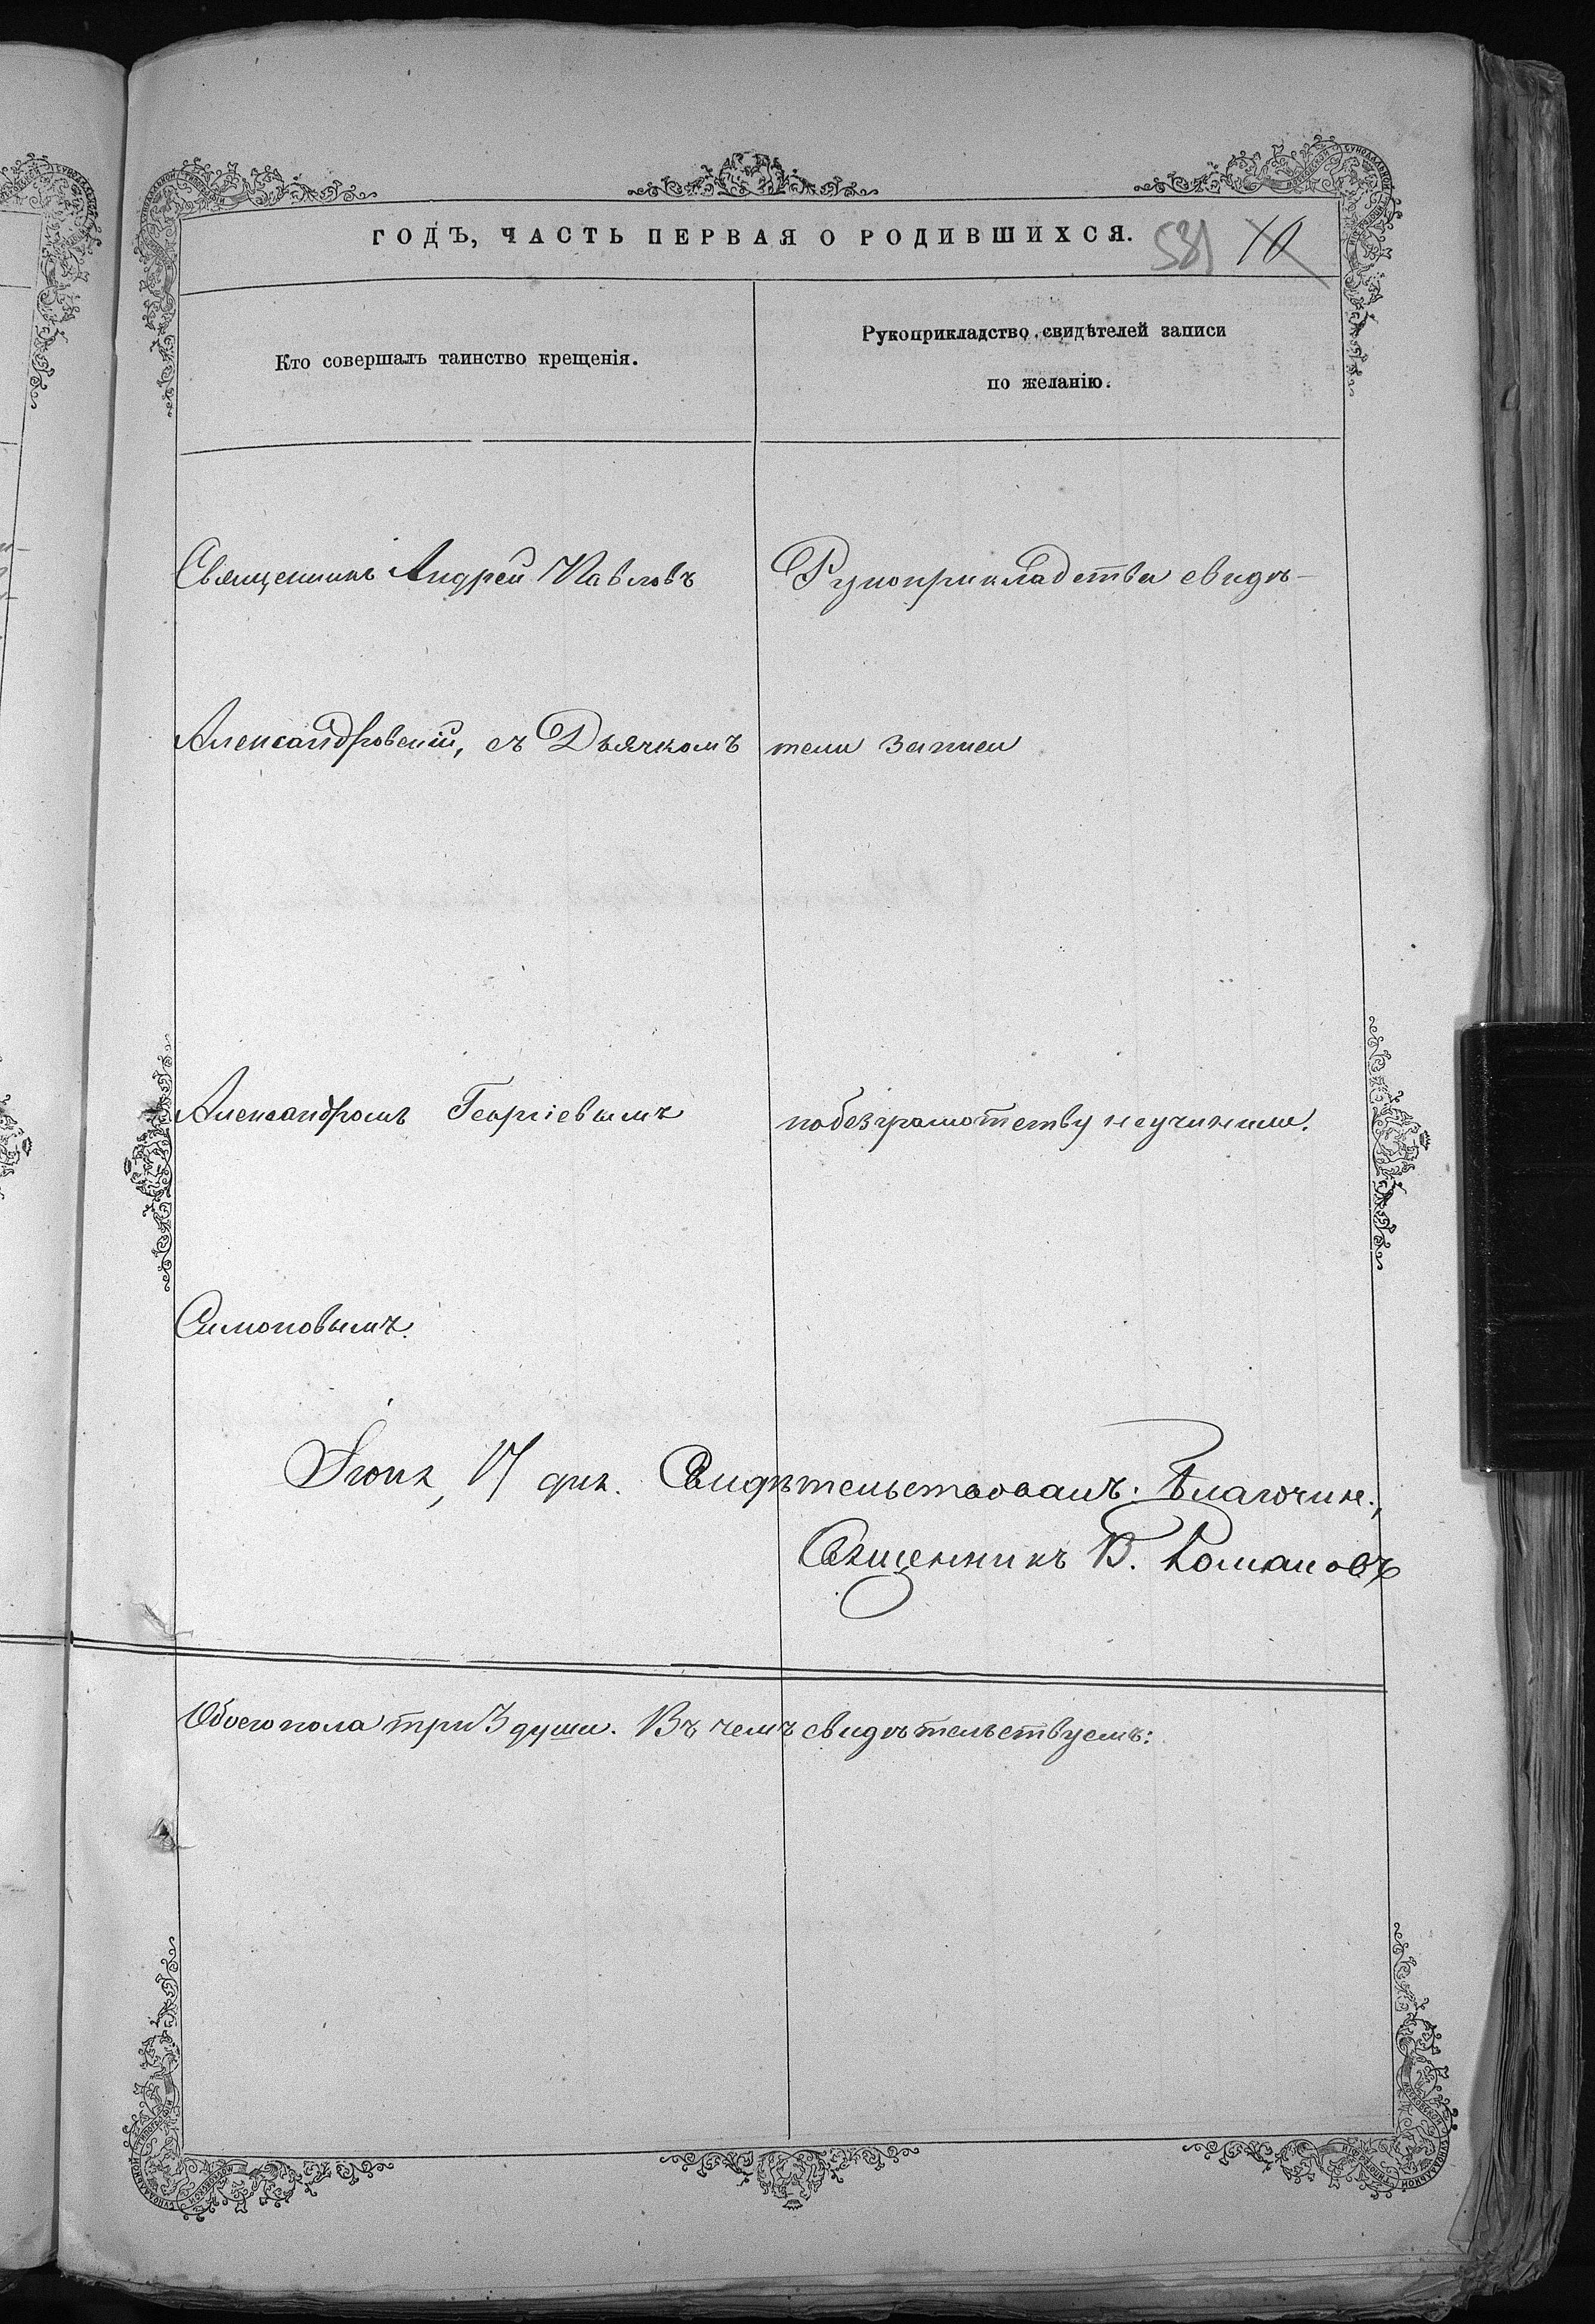 ГОДЪ, ЧАСТЬ ПЕРВАЯ О РОДИВШИХСЯ.
531 10
Кто совершалъ таинство крещенія.
Рукоприкладство свидѣтелей записи
по желанію.
Священникъ Андрей Павловъ
Александровскій, съ Дьячкомъ
Александромъ Георгіевымъ
Симоновымъ.
Рукоприкладства свидѣ-
тели записи
по безграмотству не учинили.
Іюня, 17 дня. Свидѣтельствовалъ. Благочин.,
Священникъ В. Романовъ
Обоего пола три 3 души. Въ чемъ свидѣтельствуемъ: